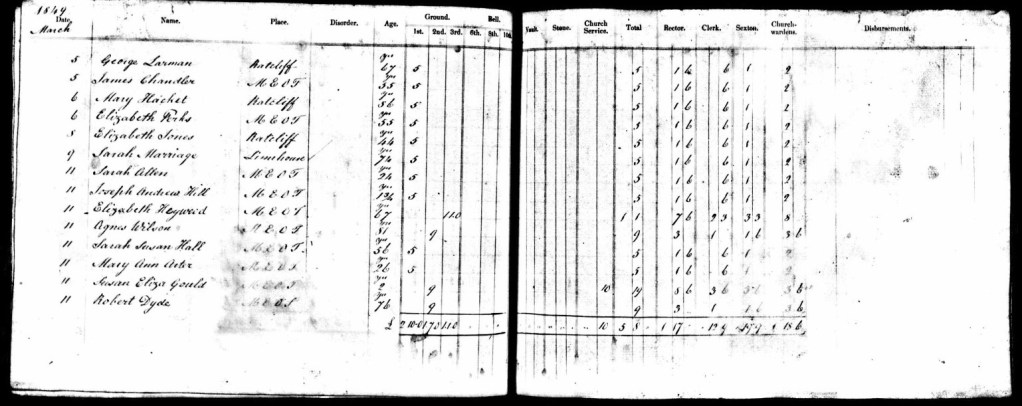 1849
Date. Name. Place. Disorder. Age. Ground. 1st. 2nd. 3rd. 6th. Bell. 8th. 10th. Vault. Stone. Church Service. Total Rector. Clerk. Sexton. Church-wardens. Disbursements.
March
5 George Larman Ratcliff yrs 67 5 5 1 6 6 1 2
5 James Chandler M E O T yrs 55 5 5 1 6 6 1 2
6 Mary Hachet Ratcliff yrs 56 5 5 1 6 6 1 2
6 Elizabeth Perks M E O T yrs 55 5 5 1 6 6 1 2
8 Elizabeth Jones Ratcliff yrs 44 5 5 1 6 6 1 2
9 Sarah Marriage Limehouse yrs 74 5 5 1 6 6 1 2
11 Sarah Allen M E O T yrs 24 5 5 1 6 6 1 2
11 Joseph Andrew Hill M E O T 5 5 1 6 6 1 2
11 Elizabeth M E O T yrs 67 1 1 0 1 1 7 6 2 3 3 3 8
11 Agnes Wilson M E O T yrs 81 9 9 3 1 1 6 3 6
11 Sarah Susan Hall M E O T yrs 56 5 5 1 6 6 1 2
11 Mary Ann M E O T yrs 26 5 5 1 6 6 1 2
11 Susan Eliza Gould M E O T yrs 2 9 10 19 8 6 3 6 3 6
11 Robert Dyde M E O T yrs 76 9 9 3 1 1 6 3 6
£ 2 10 0 1 7 0 1 1 0 10 5 8 1 17 12 9 1 18 6